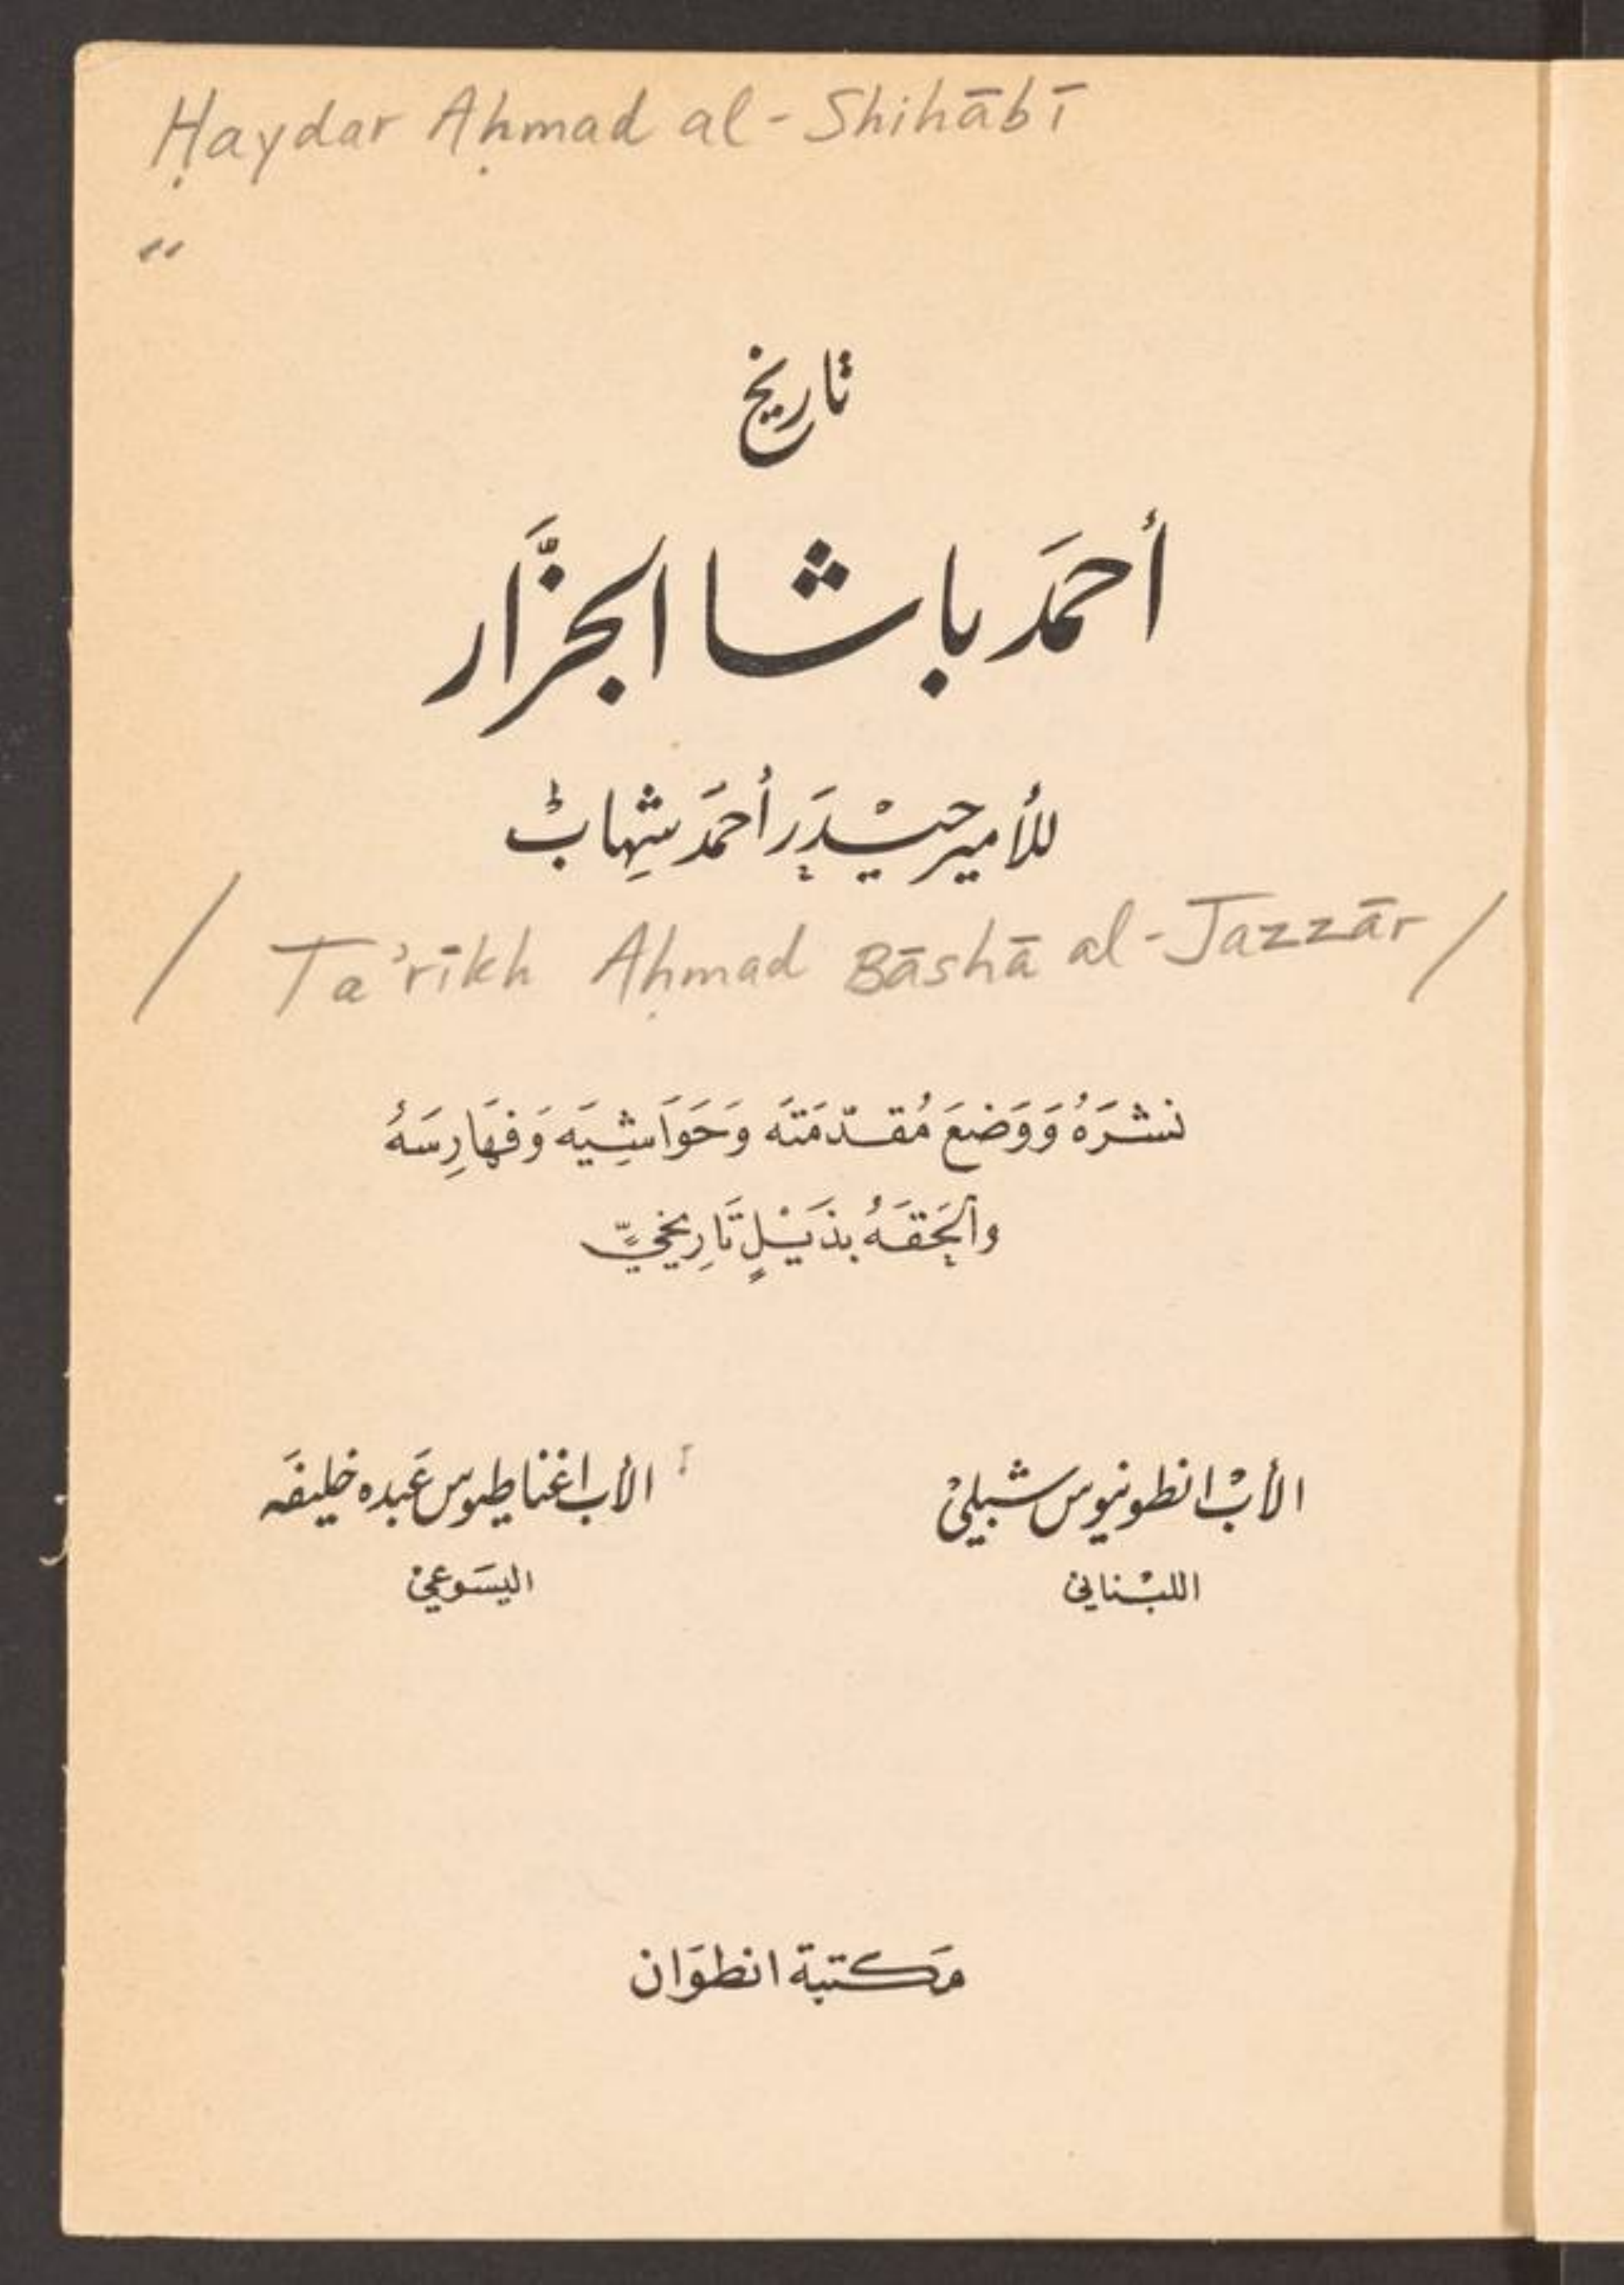 Ḥaydar Aḥmad al-Shihābī
"
تاريخ
أحمَد باشا الجزَّار
للأمير حيْدَر أحمَد شِهابْ
/ Ta'rīkh Aḥmad Bāshā al-Jazzār /
نشرَهُ وَوَضعَ مُقدّمَتَه وَحَوَاشِيَه وَفهَارِسَهُ
وألحَقَهُ بذَيْلٍ تَاريخيٍّ
الأبْ انطونيوس شبليْ
اللبْنانيْ
الأب اغناطيوس عَبده خليفَه
اليسَوعيْ
مَكتبة انطوَان